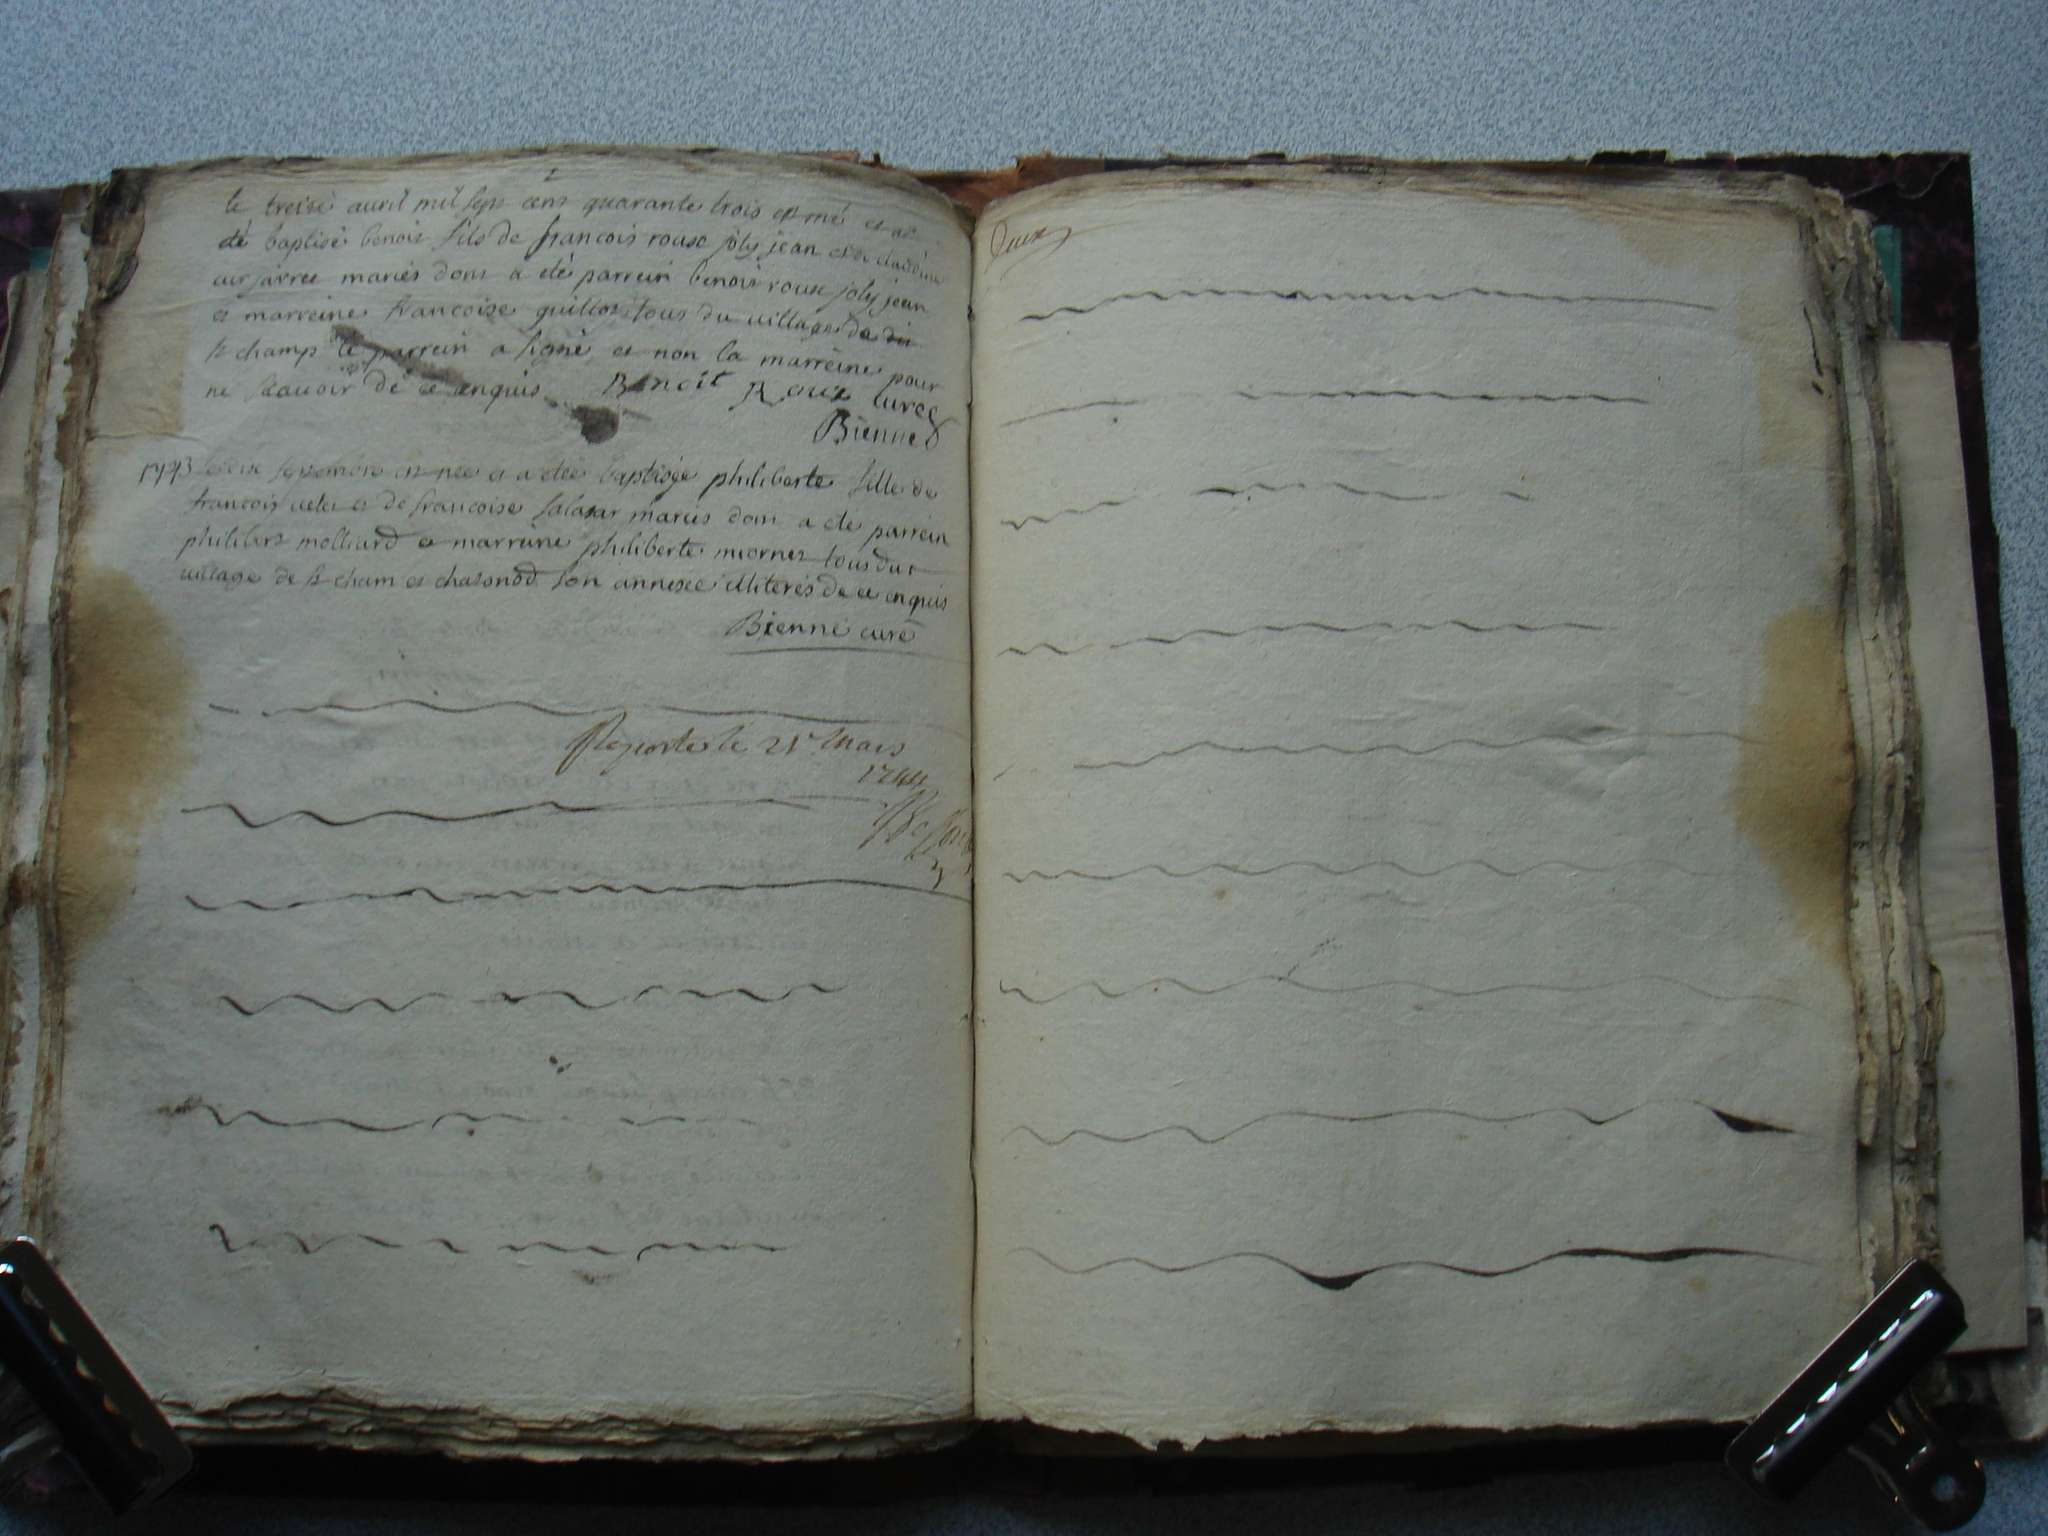 le treise auril mil sept cens quarante trois est né et a
été baptisé benoit fils de francois rouse joly jean et de claudine
mariés dont a été parrein benoit rouse joly jean
et marreine francoise guillot tous du village de
st champ le parrein a signé et non la marreine pour
ne scauoir de ce enquis Benoit Roux curé
Bienne
1743 septembre est nee et a été baptisée philiberte fille de
francois et de francoise salasar mariés dont a été parrein
philibert molliard et marreine philiberte mornet tous du
village de st cham et chatonod son annexe illiterés de ce enquis
Bienne curé
le 21e mars
1744